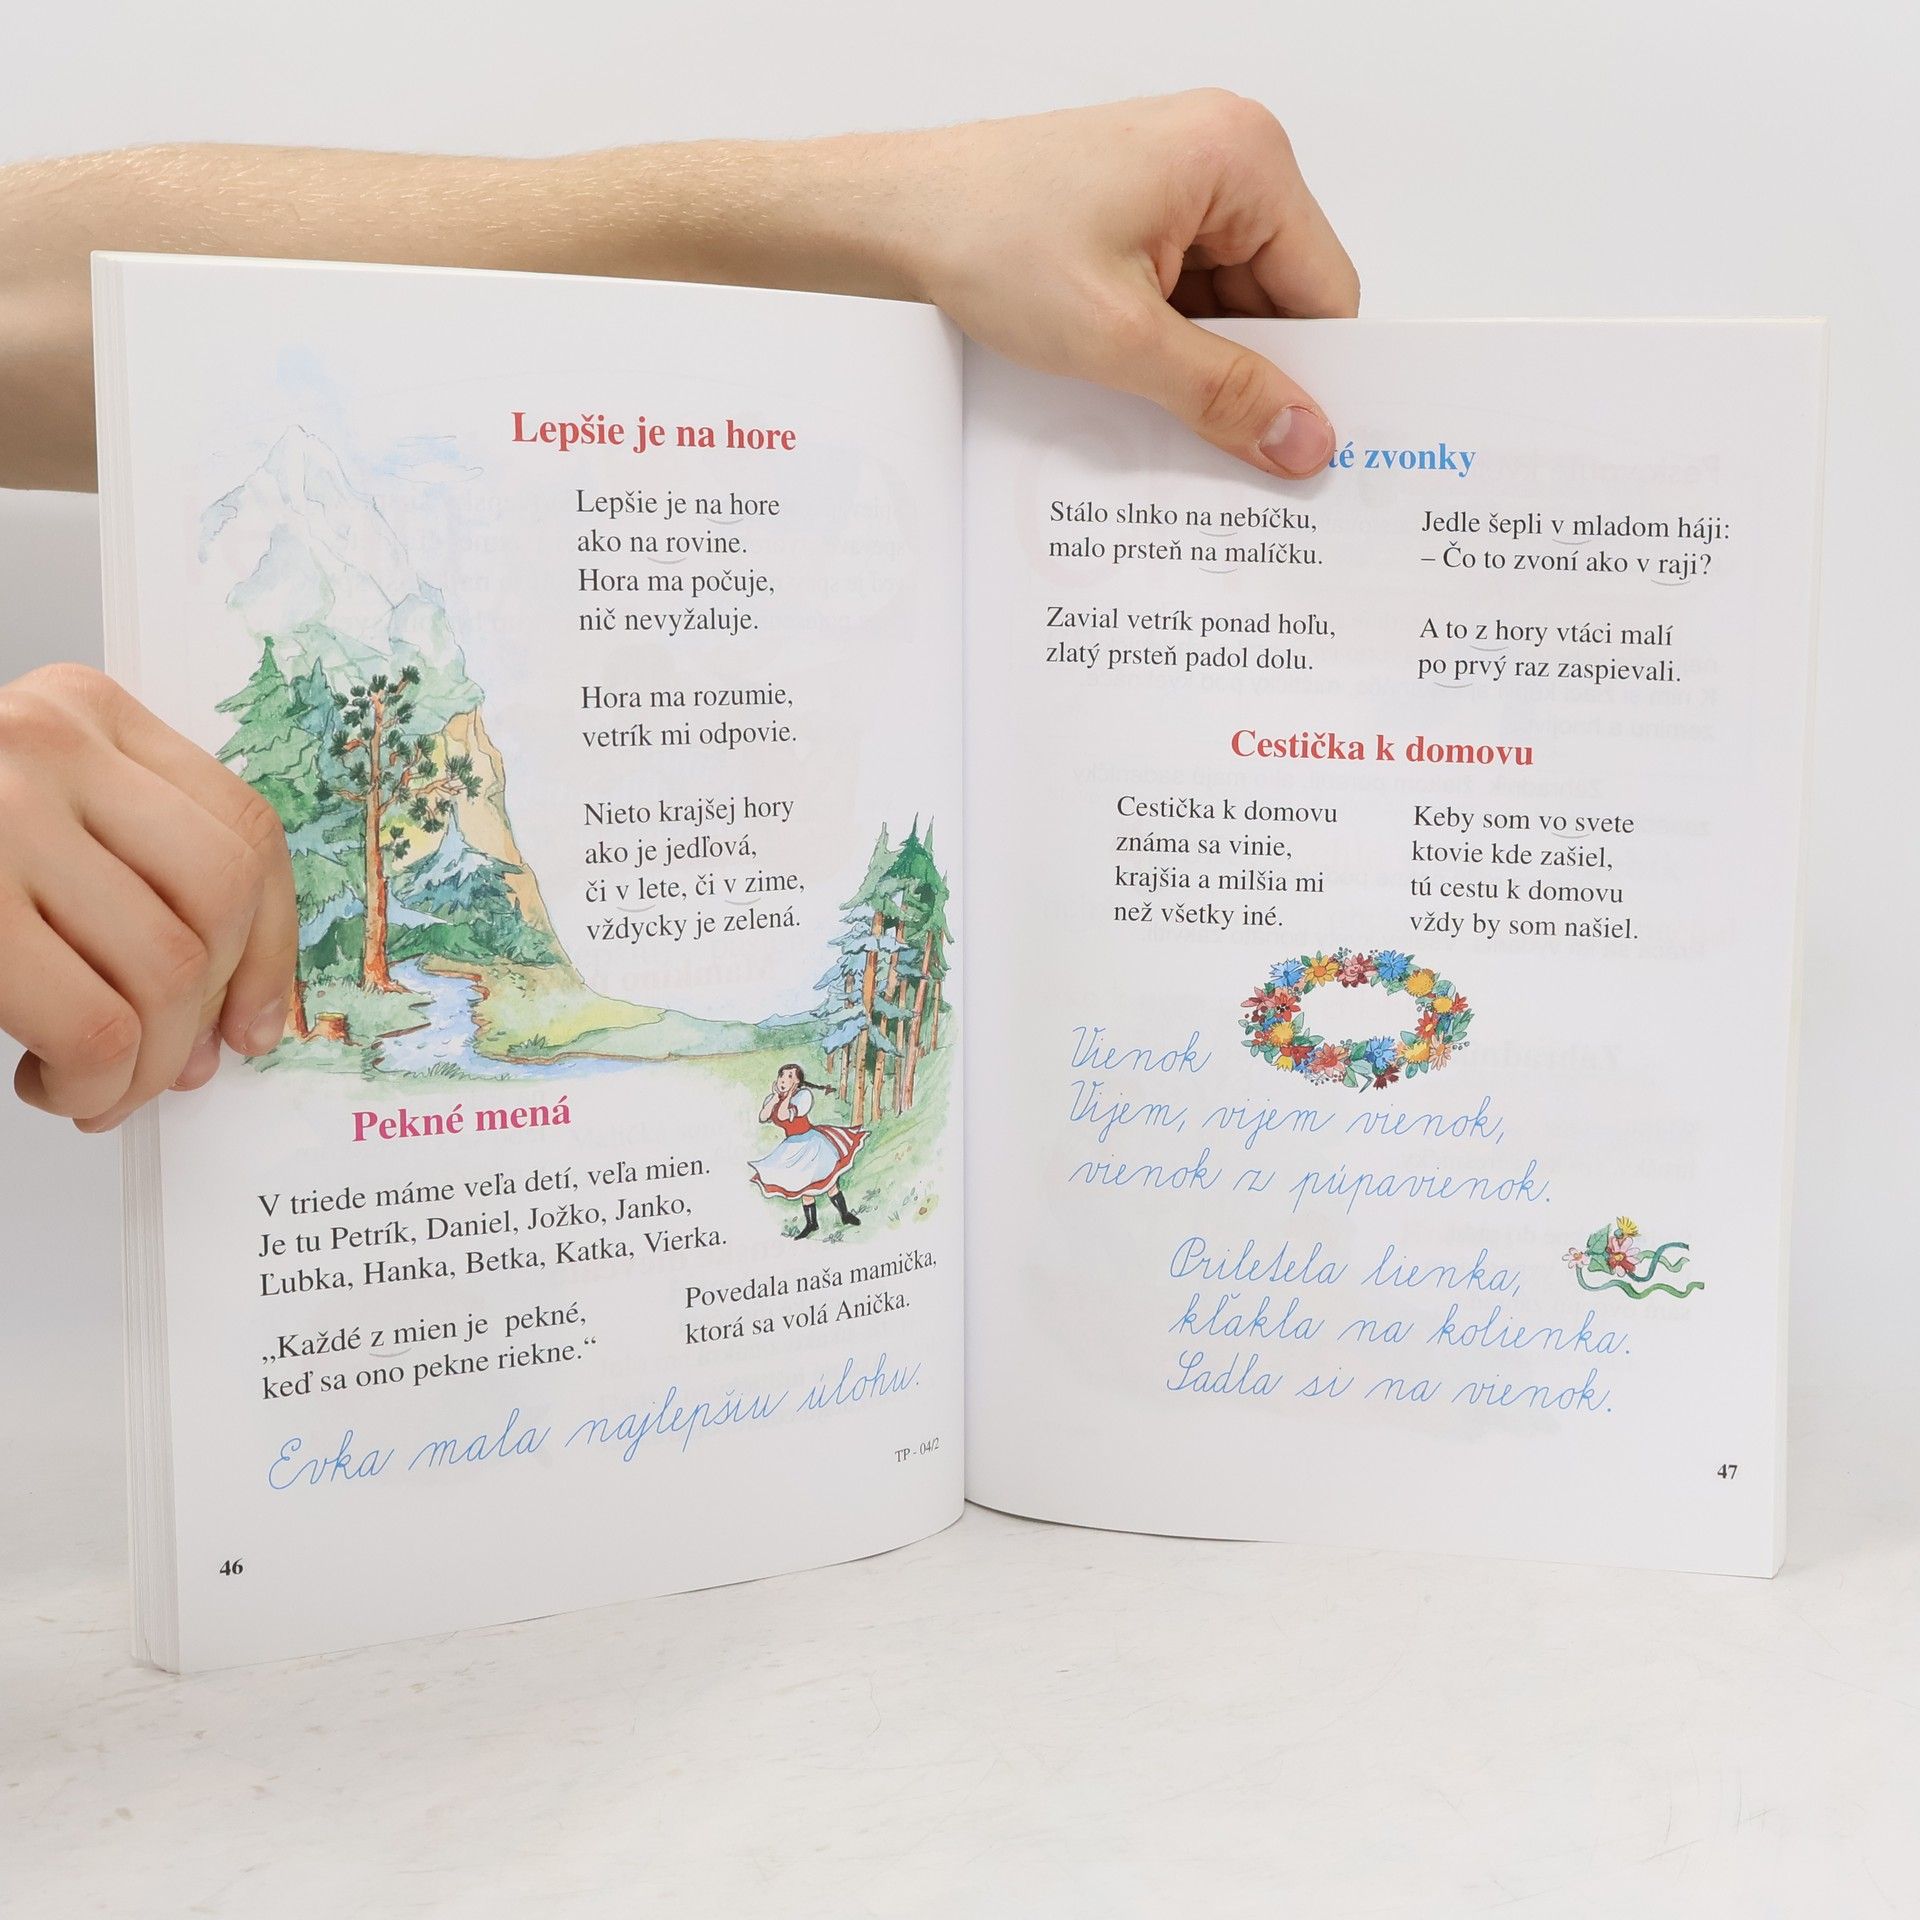 Lepšie je na hore
Lepšie je na hore
ako na rovine.
Hora ma počuje,
nič nevyžaluje.
Hora ma rozumie,
vetrík mi odpovie.
Nieto krajšej hory
ako je jedľová,
či v lete, či v zime,
vždycky je zelená.
Pekné mená
V triede máme veľa detí, veľa mien.
Je tu Petrík, Daniel, Jožko, Janko,
Ľubka, Hanka, Betka, Katka, Vierka.
„Každé z mien je pekné,
keď sa ono pekne riekne.“
Povedala naša mamička,
ktorá sa volá Anička.
Evka mala najlepšiu úlohu.
TP - 04/2
46
zvonky
Stálo slnko na nebíčku,
malo prsteň na malíčku.
Zavial vetrík ponad hoľu,
zlatý prsteň padol dolu.
Jedle šepli v mladom háji:
– Čo to zvoní ako v raji?
A to z hory vtáci malí
po prvý raz zaspievali.
Cestička k domovu
Cestička k domovu
známa sa vinie,
krajšia a milšia mi
než všetky iné.
Keby som vo svete
ktovie kde zašiel,
tú cestu k domovu
vždy by som našiel.
Vienok
Vijem, vijem vienok,
vienok z púpavienok.
Priletela lienka,
kľakla na kolienka.
Sadla si na vienok.
47